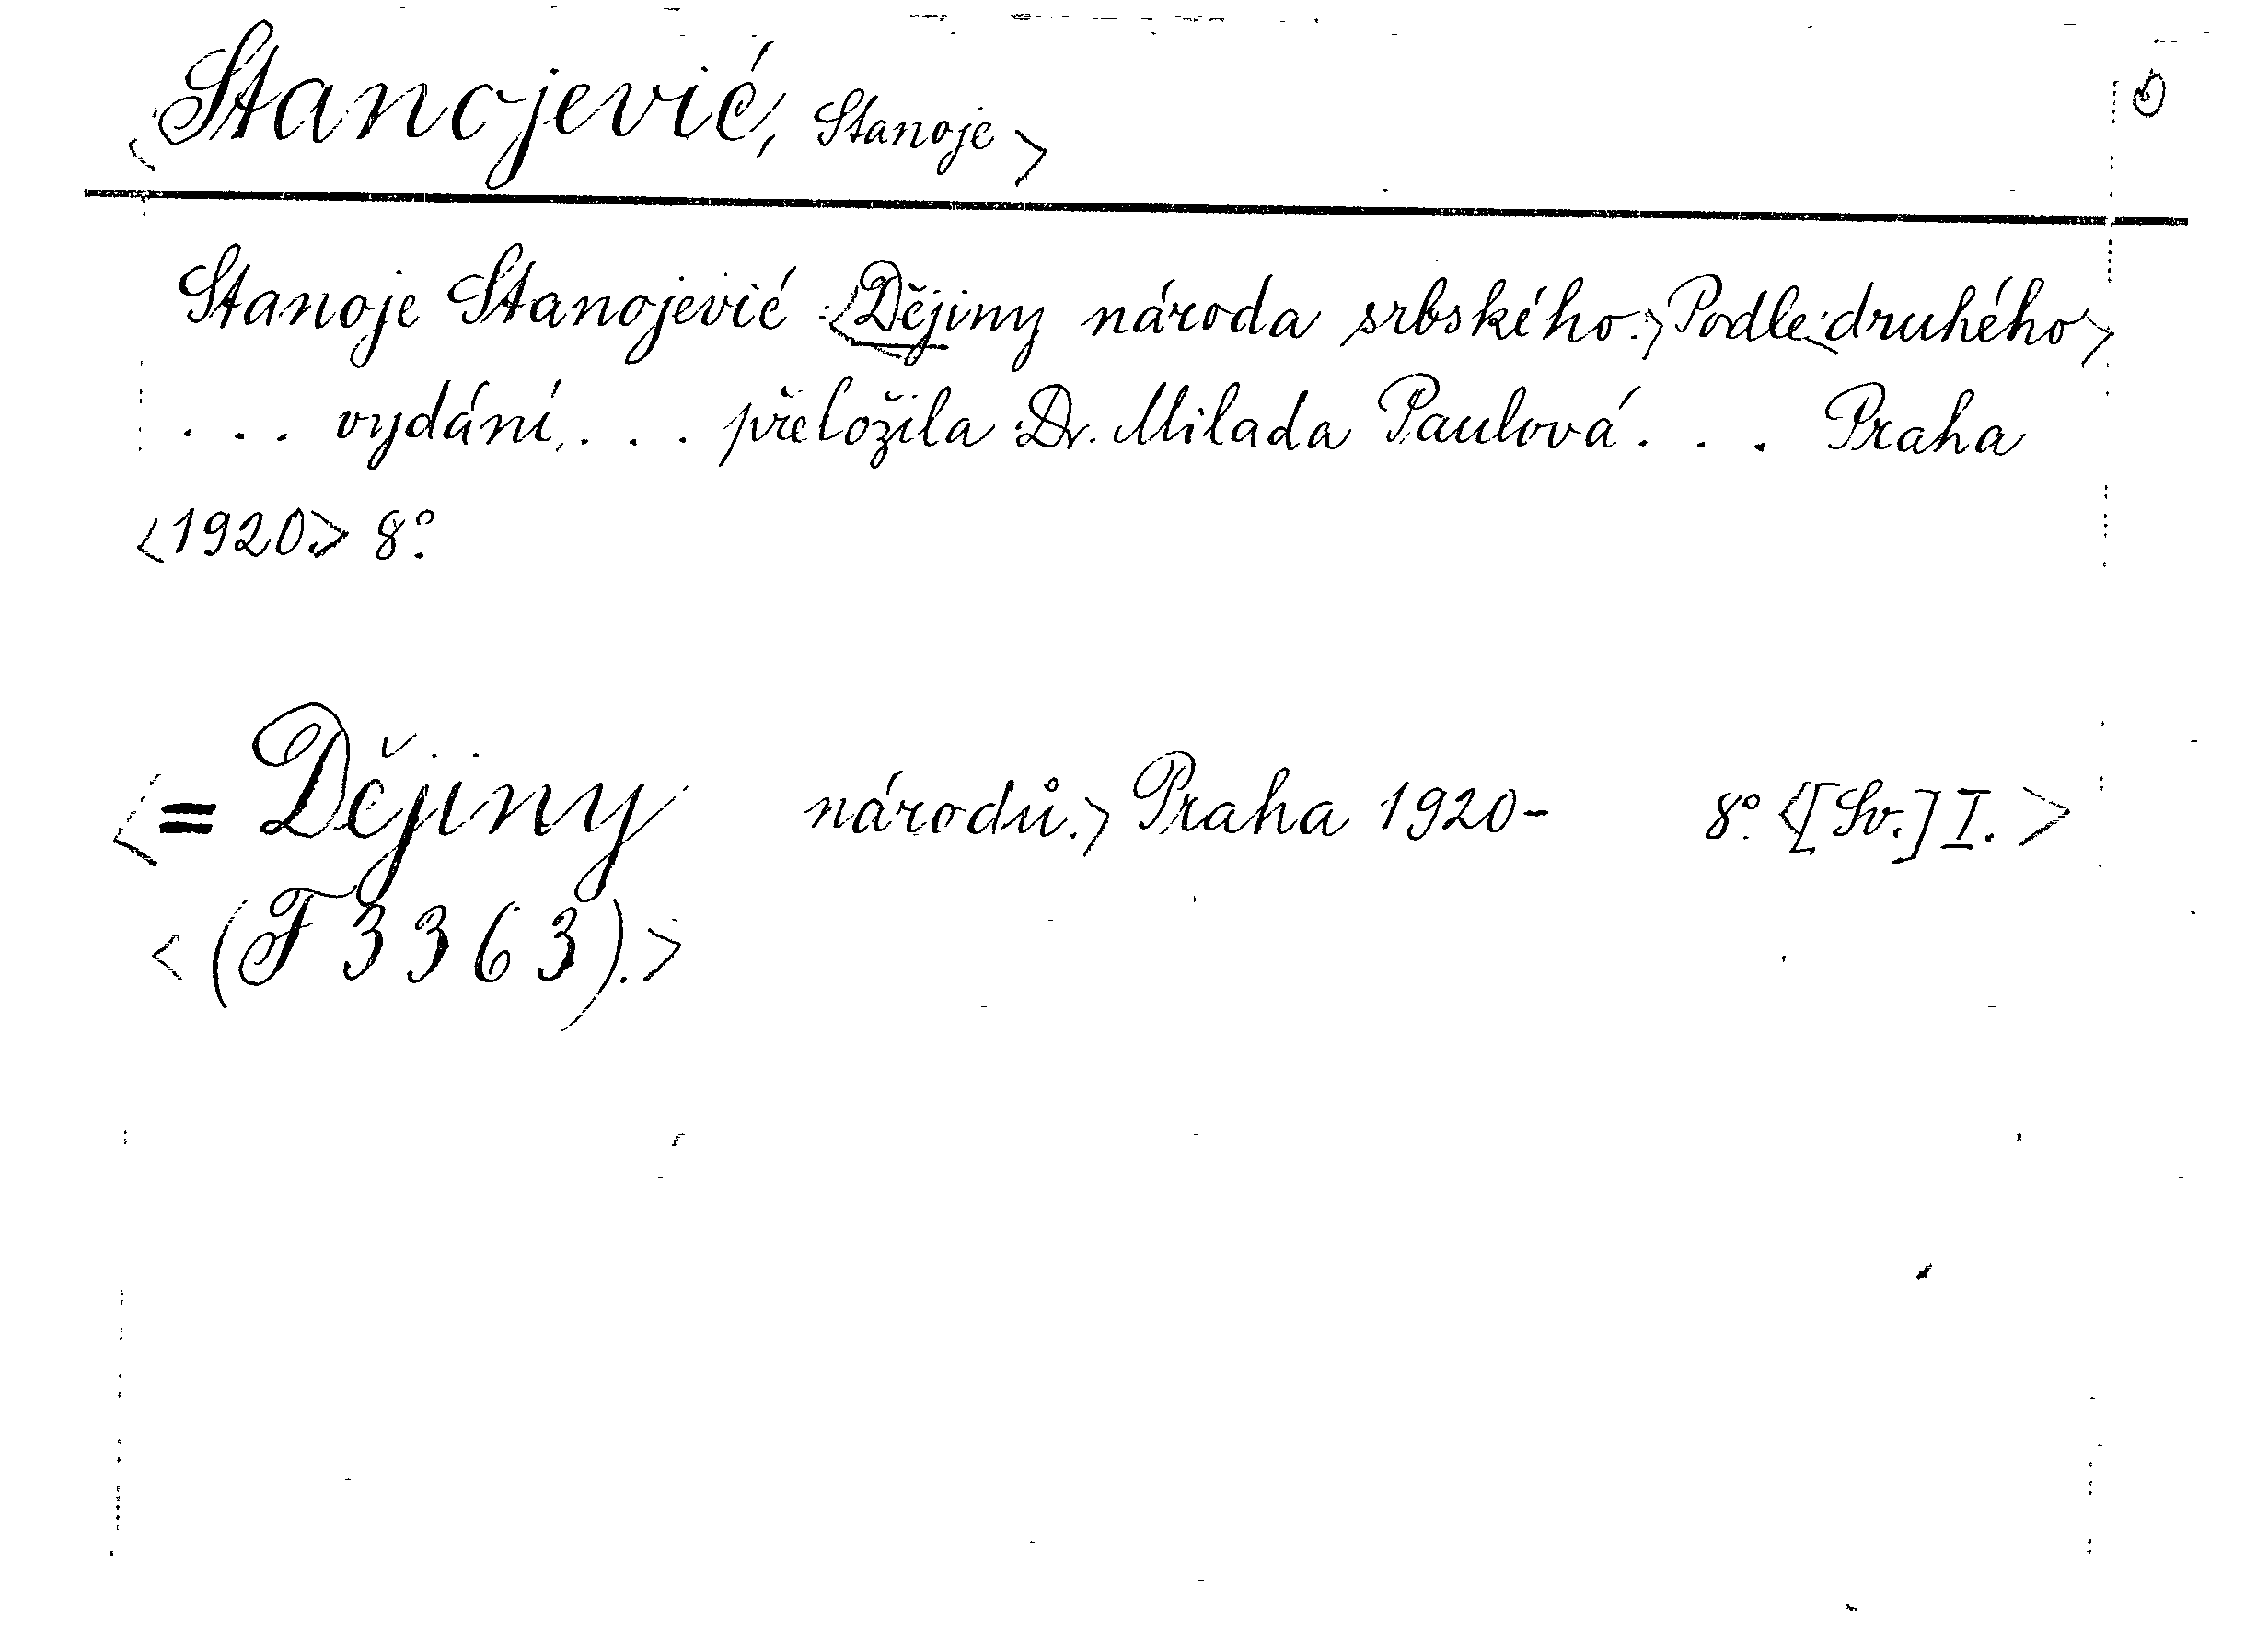 <Stanojević, Stanoje>
Stanoje Stanojević: <Dějiny národa srbského.> Podle <druhého>
... vydání, ... přeložila Dr. Milada Paulová ... Praha
<1920> 8°.
<= Dějiny národů.> Praha 1920- 8°. <[Sv.] I.>
<(F 3363).>